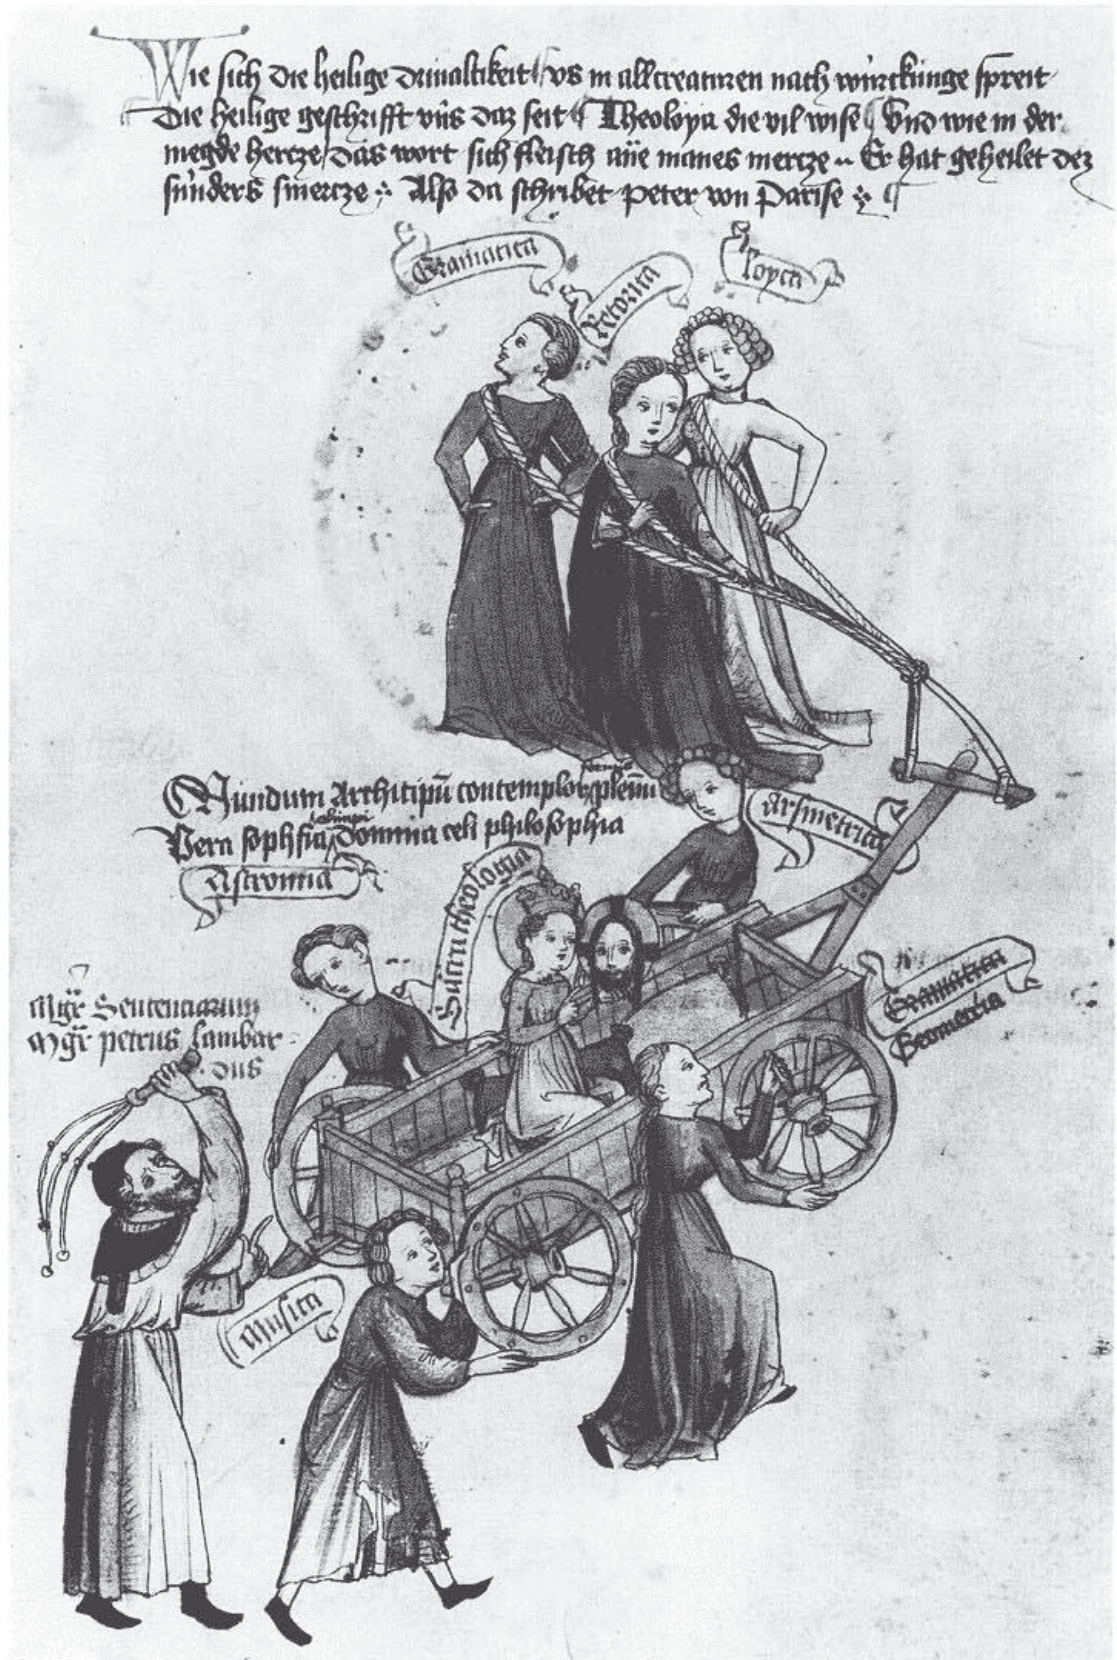 Wie sich die heilige drivaltikeit us in all creaturen nach würckunge spreit
Die heilige geschrifft uns daz seit Theoloya die vil wise Und wie in der
megde hercze das wort sich fleisch ane manes mercze Er hat geheilet dez
sünders smercze Also da schribet peter von Parise
Gramatica
Retorica
Loyca
Mundum Architipū contemplor plenū
Vera sophia Domina celi philosophia
Arsmetrica
Astromia
Sacra theologia
Mgr Sentenciarum
Mgr petrus lambar
dus
Gramatica
Geometria
Musica